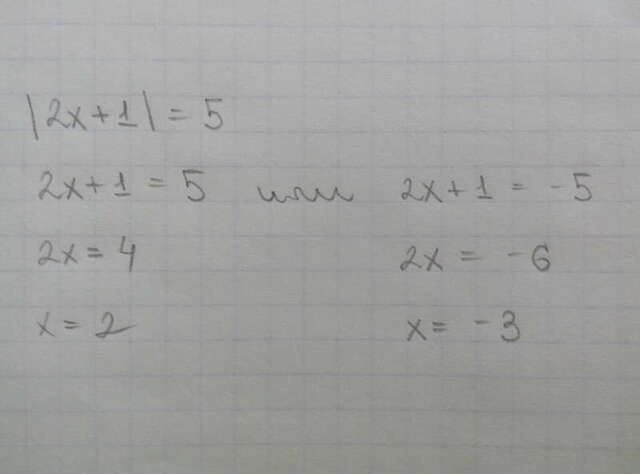 |2x+1| = 5
2x+1 = 5 или 2x+1 = -5
2x = 4 2x = -6
x = 2 x = -3